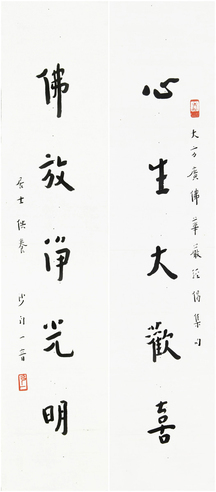 大方廣佛華嚴經偈集句
心生大歡喜
佛放淨光明
居士供養 沙門一音